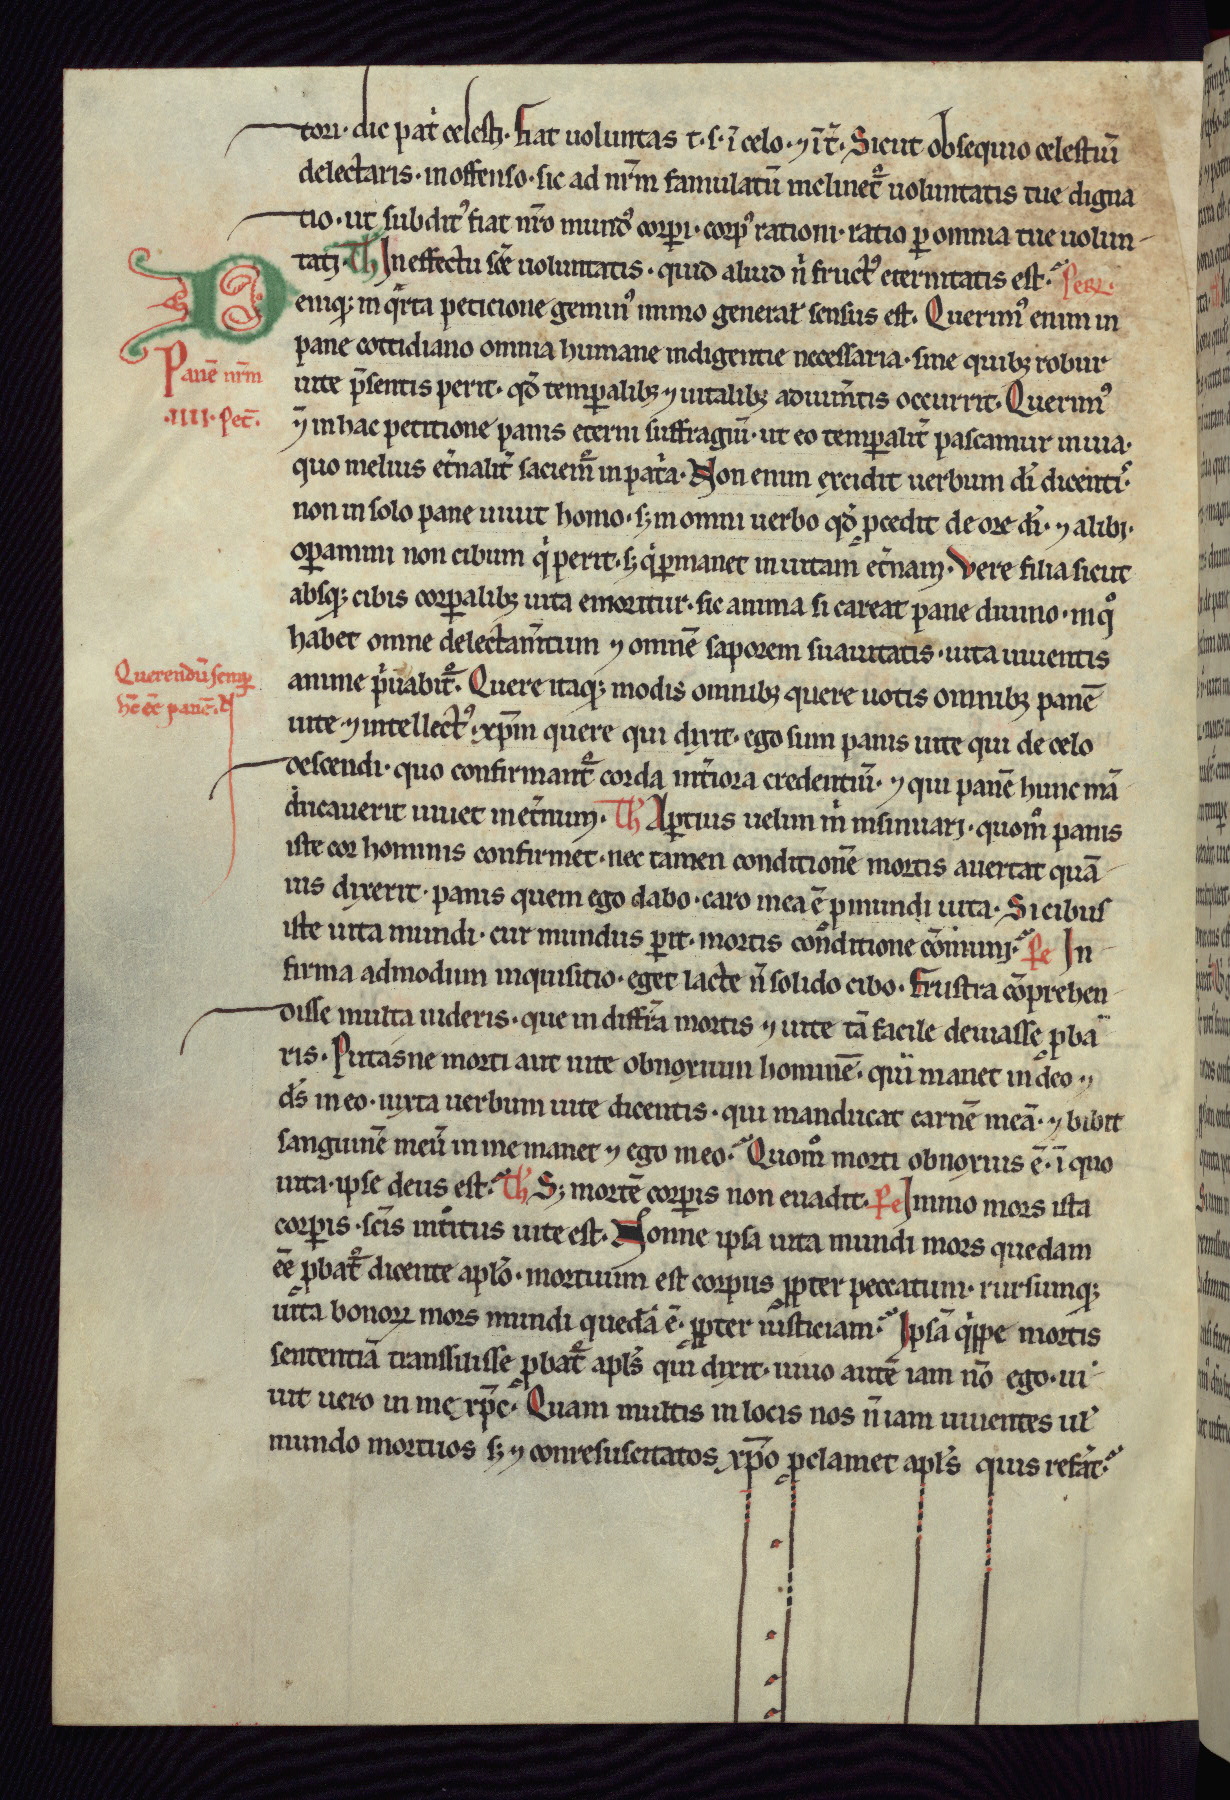 tori· dic pat̉ celesti· fiat uoluntas t·s· ī celo· ⁊ ī t̉· Sicut obsequio celestiū
delectaris· inoffenso· sic ad nr̄m famulatū inclinet᷑ uoluntatis tue digna
tio· ut subdit᷒ fiat nr̄o mund᷒ corpi· corp᷒ rationi· ratio ꝑ omnia tue uolun-
tati· Th̄ In effectu sc̄e uoluntatis· quid aliud n̄ fruct᷒ eternitatis est· Per·
Deniqꝫ in qrͣta peticione gemin᷒ immo general̕ sensus est· Querim᷒ enim in
Panē nr̄m
·IIII· pet̄·
pane cottidiano omnia humane indigentie necessaria· sine quibꝫ robur
uite p̄sentis perit· qd̄ temꝑalibꝫ ⁊ uitalibꝫ adium̄tis occurrit· Querim᷒
⁊̄ in hac petitione panis eterni suffragiū· ut eo temꝑalit̉ pascamur in uia·
quo melius et̉nalit̉ saciem᷑ in pat̉a· Non enim excidit uerbum di̅ dicentı᷒·
non in solo pane uiuit homo· sꝫ in omni uerbo qd̄ ꝓcedit de ore di̅· ⁊ alibi·
oꝑamini non cibum qͥ perit· sꝫ qͥ ꝑmanet in uitam et̉nam· Vere filia sicut
absqꝫ cibis corꝑalibꝫ uita emoritur· sic anima si careat pane diuino· in qͦ
habet omne delectam̄tum ⁊ omnē saporem suauitatis· uita uiuentis
Querendū semꝑ
hc̄ ee̅ panē·
anime pͥuabit᷑· Quere itaqꝫ modis omnibꝫ quere uotis omnibꝫ panē
uite ⁊ intellect᷒· xp̄m quere qui dixit· ego sum panis uite qui de celo
descendi· quo confirmant᷑ corda int̉iora credentiū· ⁊ qui panē hunc mā
ducauerit uiuet in et̉num· Th̄ Aꝑtius uelim mͥ insinuari· quomͦ panis
iste cor hominis confirmet· nec tamen conditionē mortis auertat quā
uis dixerit· panis quem ego dabo· caro mea ē ꝓ mundi uita· Si cibus
iste uita mundi· cur mundus ꝑit· mortis conditione cōmuni· Pe In
firma admodum inquisitio· eget lacte n̄ solido cibo· Frustra cōprehen-
disse multa uideris· que in diffr̄ia mortis ⁊ uite tā facile deuiasse ꝓba
ris· Putasne morti aut uite obnoxium hominē· qui manet in deo ⁊
ds̄ in eo· iuxta uerbum uite dicentis· qui manducat carnē meā· ⁊ bibit
sanguinē meū in me manet ⁊ ego in eo· Quomͦ morti obnoxius ē· ī quo
uita· ipse deus est· Th̄ Sꝫ mortē corꝑis non euadit· Pe Immo mors ista
corꝑis· scīs int̉itus uite est· Nonne ipsa uita mundi mors quedam
ee̅ ꝓbat᷑ dicente apl̄o· mortuum est corpus ꝓpter peccatum· rursumqꝫ
uita bonoꝝ mors mundi quedā ē· ꝓpter iusticiam· Ipsā qͥppe mortis
sententiā transsiuisse ꝓbat᷑ apl̄s qui dixit· uiuo autē iam nō ego· ui-
uit uero in me xp̄c· Quam multis in locis nos n̄ iam uiuentes ul̕
mundo mortuos sꝫ ⁊ conresuscitatos xp̄o ꝓclamet apl̄s quis refat·